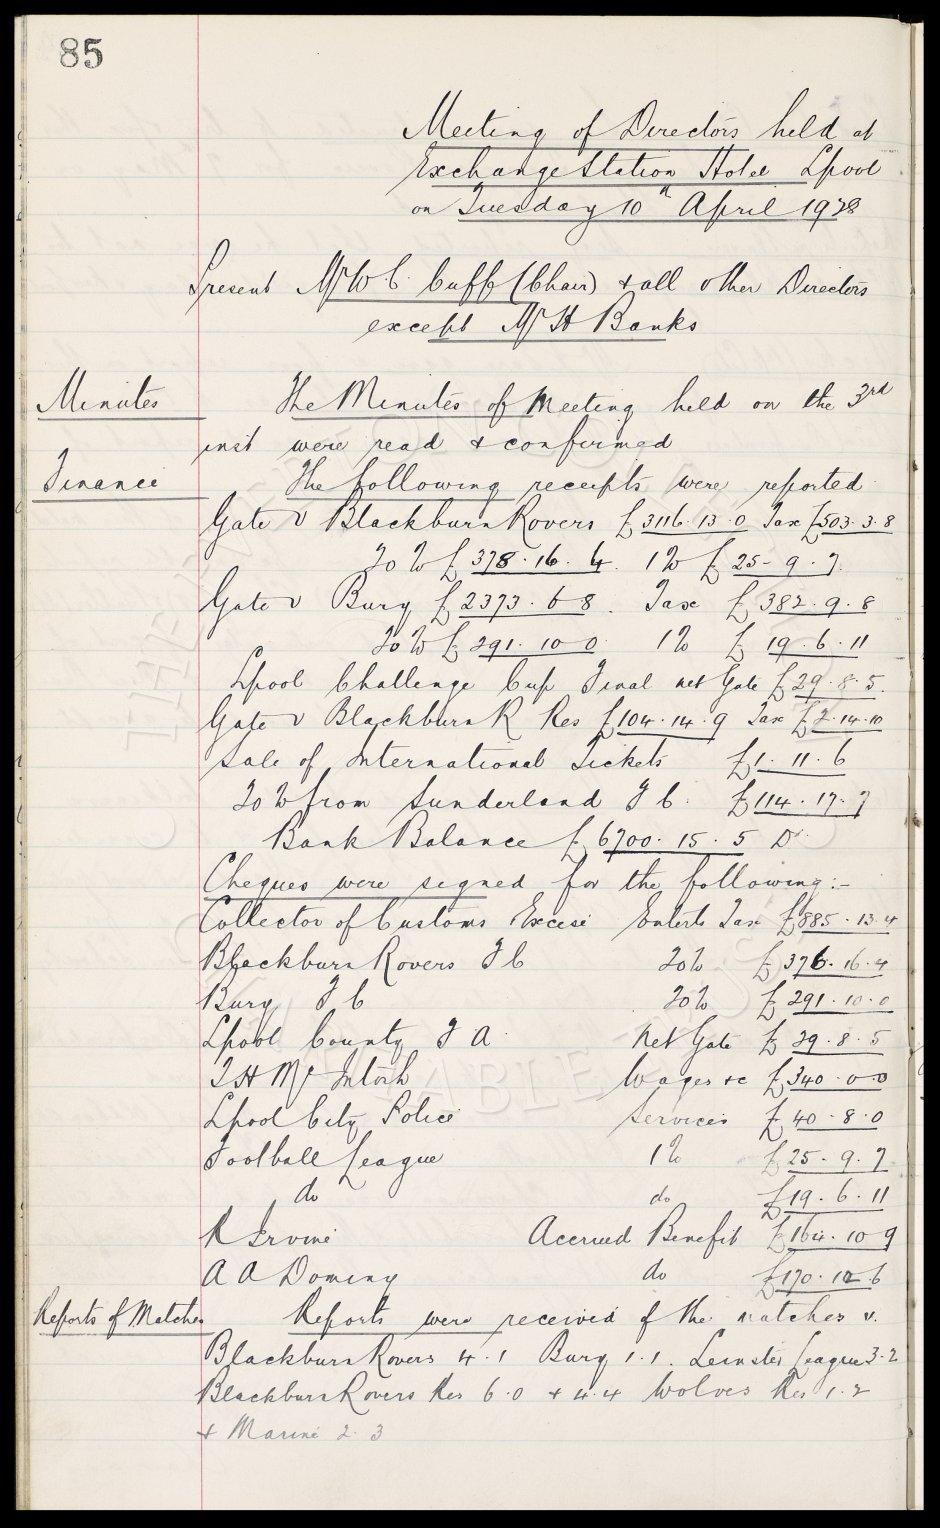 85
Meeting of Directors held at
Exchange Station Hotel Lpool
on Tuesday 10th April 1928
Present Mr W C Cuff (Chair) & all other Directors
except Mr H Banks
Minutes The Minutes of Meeting held on the 3rd
inst were read & confirmed
Finance The following receipts were reported
Gate v Blackburn Rovers £3116.13.0 Tax £503.3.8
20% £378.16.4. 1% £25-9.7.
Gate v Bury £2373.6 8. Tax £382.9.8
20% £291.10 0 1% £19.6.11
Lpool Challenge Cup Final net Gate £29.8.5.
Gate v Blackburn R Res £104.14.9 Tax £2.14.10
Sale of International Tickets £1.11.6
20% from Sunderland F C. £114.17.7
Bank Balance £6700.15.5 Dr.
Cheques were signed for the following:-
Collector of Customs Excise Enterts Tax £885.13.4
Blackburn Rovers F C 20% £376.16.4
Bury F C 20% £291.10.0
Lpool County F A. Net Gate £29.8.5
T H McIntosh Wages &c £340.0.0
Lpool City Police Services £40.8.0
Football League 1% £25.9.7
do do £19.6.11
R Irvine Accrued Benefit £164.10 9
A A Dominy do £170.12.6
Reports of Matches Reports were received of the matches v.
Blackburn Rovers 4.1 Bury 1.1. Leinster League 3-2
Blackburn Rovers Res 6.0 & 4.4 Wolves Res 1.2
& Marine 2.3